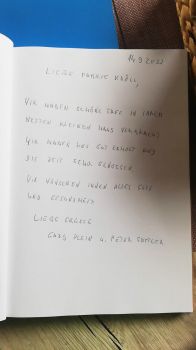 14.9.2022
LIEBE FAMILIE KNÖLL,
WIR HABEN SCHÖNE TAGE IN IHREM
NETTEN KLEINEN HAUS VERBRACHT.
WIR HABEN UNS GUT ERHOLT UND
DIE ZEIT SEHR GENOSSEN.
WIR WÜNSCHEN IHNEN ALLES GUTE
UND GESUNDHEIT
LIEBE GRÜSSE
KLEIN U. PETER